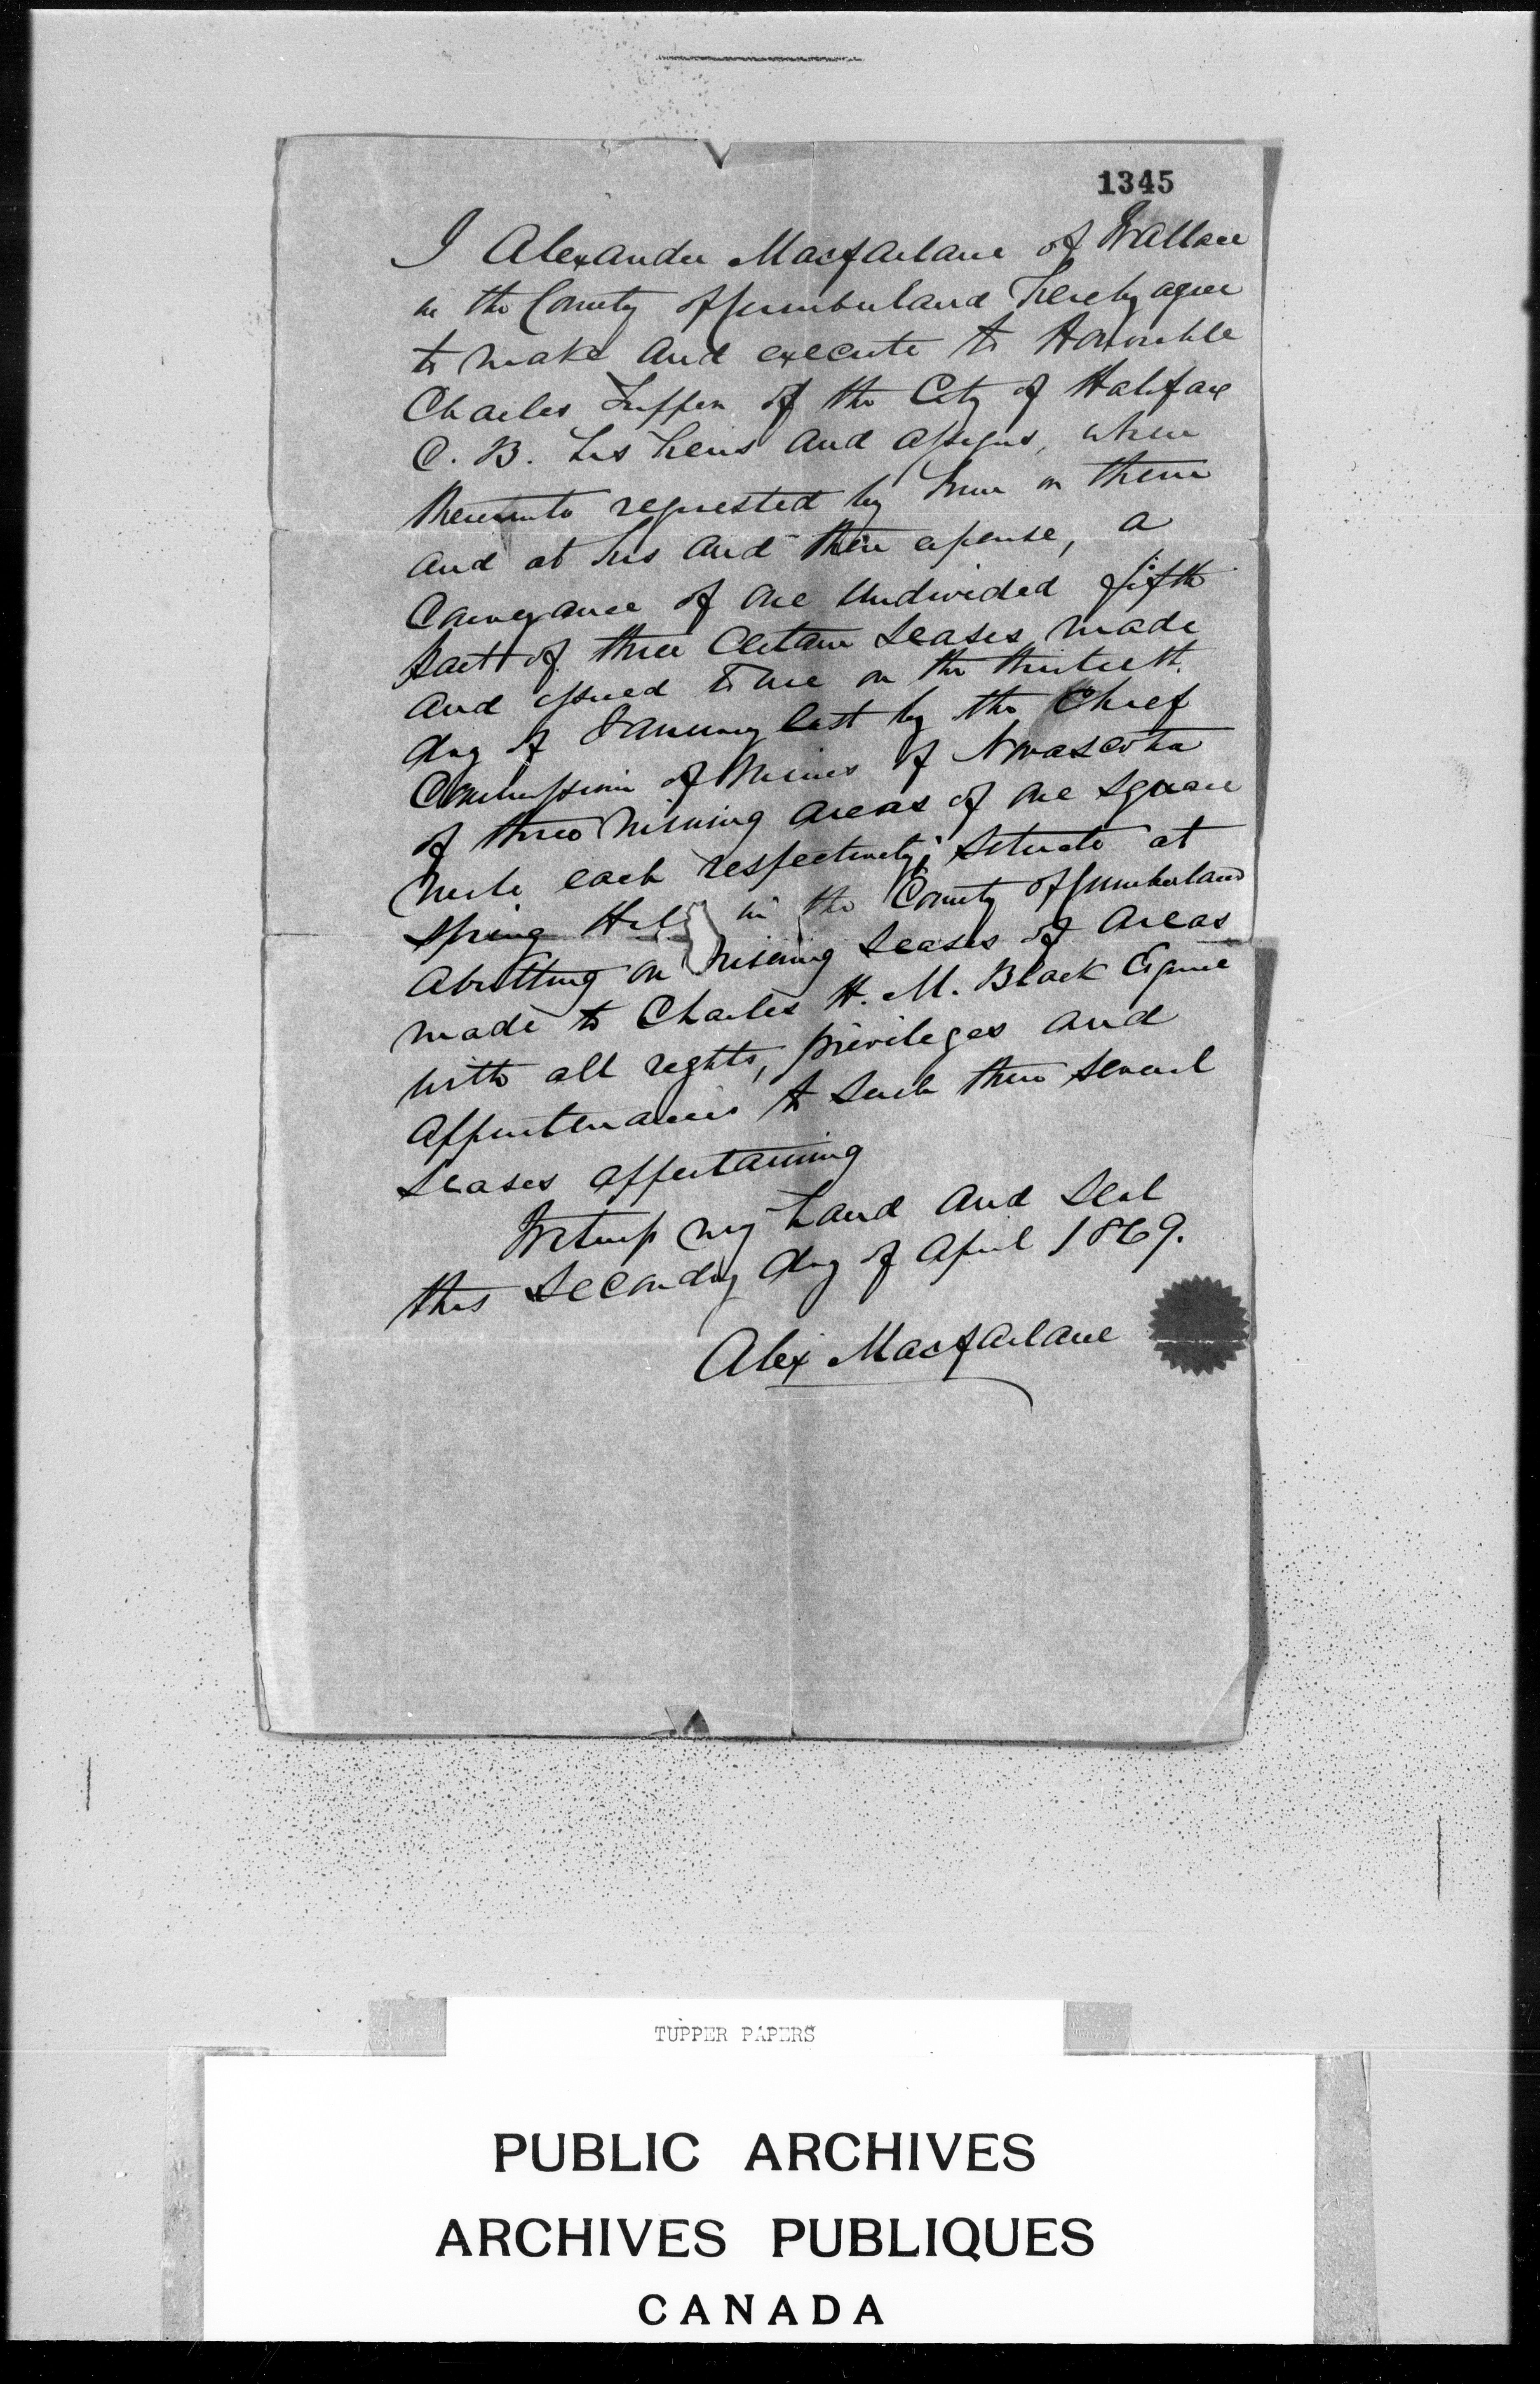 1345
I Alexander Macfarlane of Wallace
in the County of Cumberland hereby agree
to make and execute to Honorable
Charles Tupper of the City of Halifax
C. B. his heirs and assigns, when
thereunto requested by him or them
and at his and their expense, a
Conveyance of one undivided fifth
part of three Certain Leases made
and issued to me on the thirteenth
day of January last by the Chief
Commissioner of Mines of Novascotia
of three mining areas of one square
mile each respectively, situate at
Spring Hill in the County of Cumberland
abutting on mining Leases of areas
made to Charles H. M. Black Esquire
with all rights, privileges and
appurtenances to such three several
Leases appertaining
Witness my hand and Seal
this Second day of April 1869.
Alex Macfarlane
TUPPER PAPERS
PUBLIC ARCHIVES
ARCHIVES PUBLIQUES
CANADA